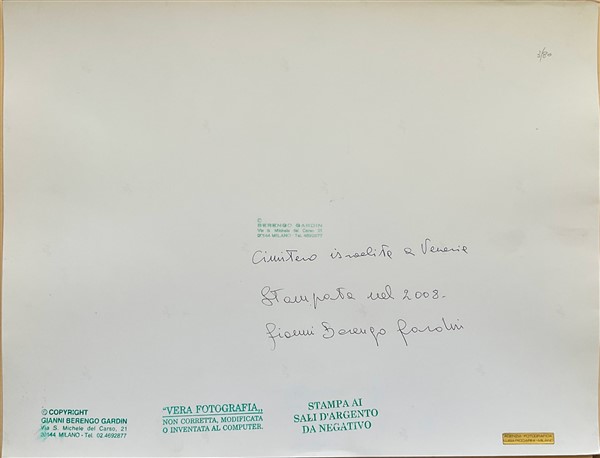 ©
BERENGO GARDIN
Via S. Michele del Carso, 21
20144 MILANO - Tel. 02/4692877
Cimitero israelita a Venezia
Stampata nel 2008.
Gianni Berengo Gardin
© COPYRIGHT
GIANNI BERENGO GARDIN
Via S. Michele del Carso, 21
20144 MILANO - Tel. 02.4692877
"VERA FOTOGRAFIA„
NON CORRETTA, MODIFICATA
O INVENTATA AL COMPUTER.
STAMPA AI
SALI D'ARGENTO
DA NEGATIVO